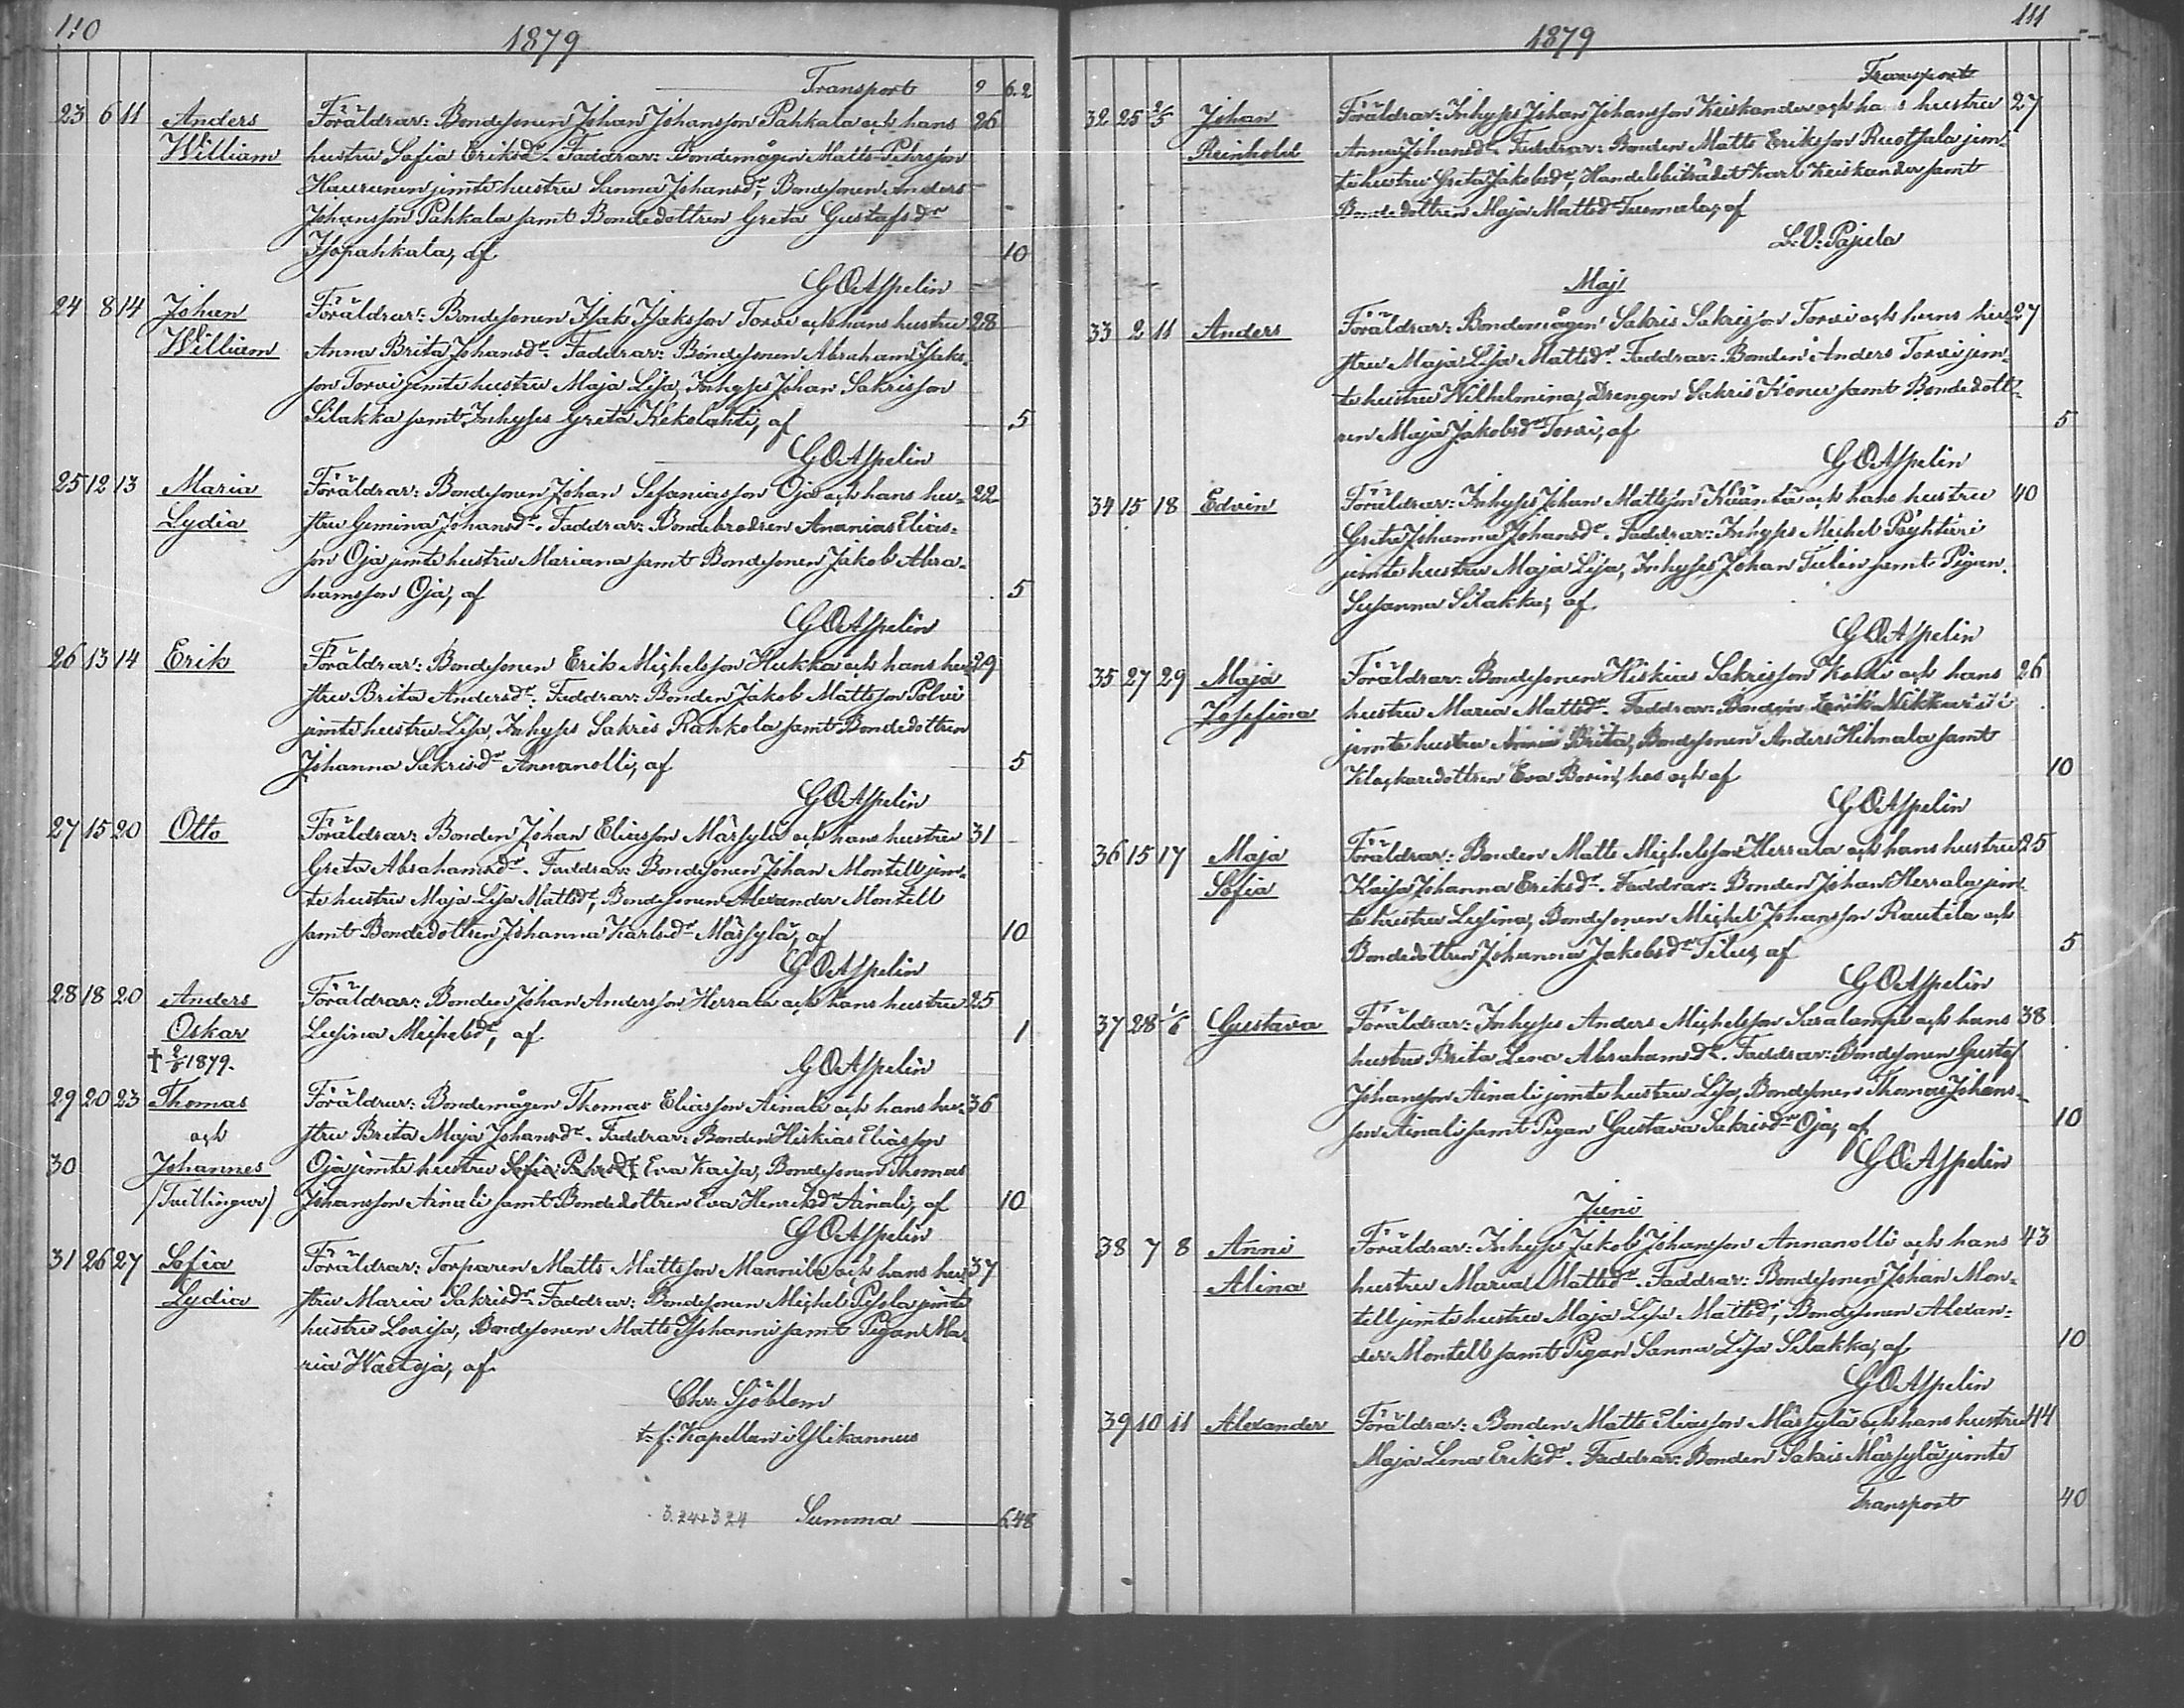 110
1879
Transport 9 6.2
23 6 11 Anders Föräldrar: Bondesonen Johan Johansson Pahkala och hans 26
William hustru Sofia Eriksdr. Faddrar: Bondemågen Matts Pehrsson
Haurunen jemte hustru Sanna Johansdr, Bondesonen Anders
Johansson Pahkala samt Bondedottren Greta Gustafsdr
Isopahkala, af 10
G O Aspelin
24 8 14 Johan Föräldrar: Bondesonen Isak Isaksson Torvi och hans hustru 28
William Anna Brita Johansdr. Faddrar: Bondesonen Abraham Isaks-
son Torvi jemte hustru Maja Lisa, Inhyses Johan Sakrisson
Silakka samt Inhyses Greta Kekolahti, af 5
G O Aspelin
25 12 13 Maria Föräldrar: Bondesonen Johan Sefaniasson Oja och hans hu- 22
Lydia stru Gemina Johansdr. Faddrar: Bondebrodren Ananias Elias-
son Oja jemte hustru Mariana samt Bondesonen Jakob Abra-
hamsson Oja, af 5
G O Aspelin
26 13 14 Erik Föräldrar: Bondesonen Erik Michelsson Hukka och hans hu- 29
stru Brita Andersdr. Faddrar: Bonden Jakob Mattsson Polvi
jemte hustru Lisa, Inhyses Sakris Rahkola samt Bondedottren
Johanna Sakrisdr Annanolli, af 5
G O Aspelin
27 15 20 Otto Föräldrar: Bonden Johan Eliasson Märsylä och hans hustru 31
Greta Abrahamsdr. Faddrar: Bondesonen Johan Montell jem-
te hustru Maja Lisa Mattsdr, Bondesonen Alexander Montell
samt Bondedottren Johanna Karlsdr Märsylä, af 10
G O Aspelin
28 18 20 Anders Föräldrar: Bonden Johan Andersson Herrala och hans hustru 25
Oskar Lusina Michelsdr, af 1
† 1879. G O Aspelin
29 20 23 Thomas Föräldrar: Bondemågen Thomas Eliasson Ainali och hans hu- 36
och stru Brita Maja Johansdr. Faddrar: Bonden Hiskias Eliasson
30 Johannes Oja jemte hustru Sofia Pehrsdr, Eva Kaisa, Bondesonen Thomas
/Tvillingar/ Johansson Ainali samt Bondedottren Eva Henriksdr Ainali, af 10
G O Aspelin
31 26 27 Sofia Föräldrar: Torparen Matts Mattsson Mannila och hans hu- 37
Lydia stru Maria Sakrisdr. Faddrar: Bondesonen Michel Pesola jemte
hustru Lovisa, Bondesonen Matts Isohanni samt Pigan Ma-
ria Wastoja, af
Chr. Sjöblom
t. f. Kapellan i Ylikannus
3.24+3 24 Summa 6.48
111
1879
Transport
32 25 2/5 Johan Föräldrar: Inhyses Johan Johansson Keiskander och ha s hustru 27
Reinhold Anna Johansdr. Faddrar: Bonden Matts Eriksson Ruotsala jem-
te hustru Greta Jakobsdr, Handelsbiträdet Karl Keiskander samt
Bondedottren Maja Mattsdr Tuomala, af
L: V: Pajula
Maj
33 2 11 Anders Föräldrar: Bondemågen Sakris Sakrisson Torvi och hans hu- 27
stru Maja Lisa Mattsdr. Faddrar: Bonden Anders Torvi jem-
te hustru Wilhelmina, Drengen Sakris Kionu samt Bondedott-
ren Maja Jakobsdr Torvi, af 5
G O Aspelin
34 15 18 Edvin Föräldrar: Inhyses Johan Mattsson Kääntä och hans hustru 40
Greta Johanna Johansdr. Faddrar: Inhyses Michel Pöyhtäri
jemte hustru Maja Lisa, Inhyses Johan Tulin samt Pigan
Susanna Silakka, af
G O Aspelin
35 27 29 Maja Föräldrar: Bondesonen Hiskias Sakrisson Koski och hans 26
Josefina hustru Maria Mattsdr. Faddrar: Bonden Erik Nikkari
jemte hustru Anna Brita, Bondesonen Anders Hihnala samt
Klockaredottren Eva Borin, hos och af 10
G O Aspelin
36 15 17 Maja Föräldrar: Bonden Matts Michelsson Herrala och hans hustru 25
Sofia Kaisa Johanna Eriksdr. Faddrar: Bonden Johan Herrala jem-
te hustru Lusina, Bondesonen Michel Johansson Rautila och
Bondedottren Johanna Jakobsdr Tilus, af 5
G O Aspelin
37 28 1/6 Gustava Föräldrar: Inhyses Anders Michelsson Saralampi och hans 38
hustru Brita Lena Abrahamsdr. Faddrar: Bondesonen Gustaf
Johansson Ainali jemte hustru Lisa, Bondesonen Thomas Johans-
son Ainali samt Pigan Gustava Sakrisdr Oja, af 10
G O Aspelin
Juni
38 7 8 Anni Föräldrar: Inhyses Jakob Johansson Annanolli och hans 43
Alina hustru Maria Mattsdr. Faddrar: Bondesonen Johan Mon-
tell jemte hustru Maja Lisa Mattsdr, Bondesonen Alexan-
der Montell samt Pigan Sanna Lisa Silakka, af 10
G O Aspelin
39 10 11 Alexander Föräldrar: Bonden Matts Eliasson Märsylä och hans hustru 44
Maja Lena Eriksdr. Faddrar: Bonden Sakris Märsylä jemte
Transport 40